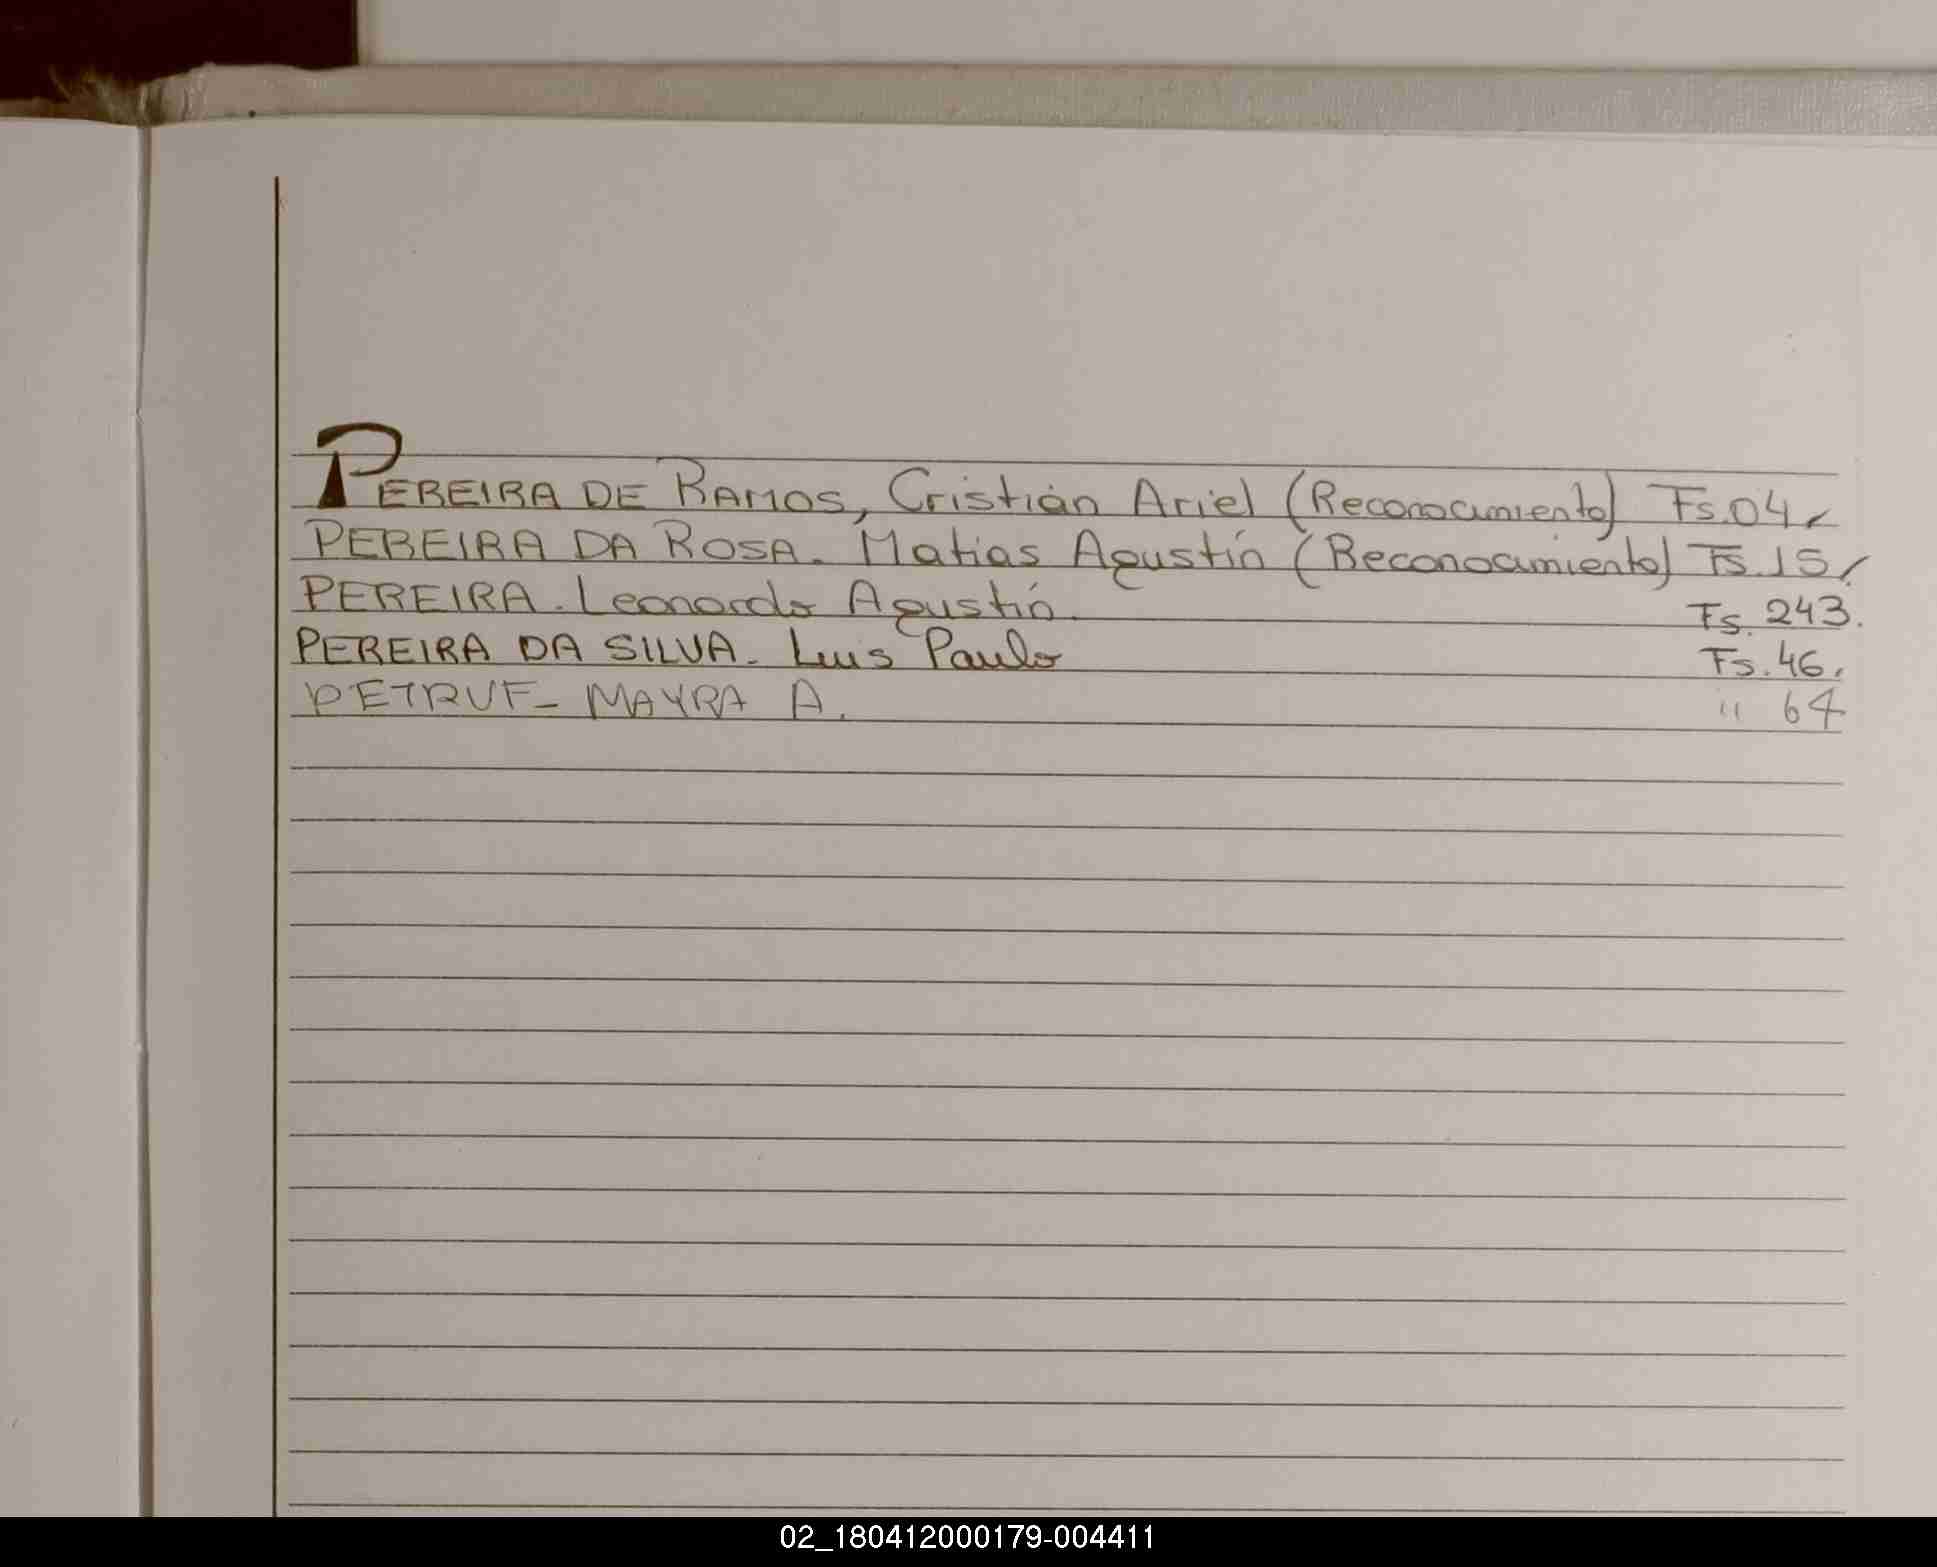 PEREIRA DE RAMOS, Cristián Ariel (Reconocimiento) Fs.04
PEREIRA DA ROSA. Matias Agustín (Reconocimiento) Fs.15
PEREIRA. Leonardo Agustín. Fs. 243.
PEREIRA DA SILVA. Luis Paulo Fs. 46.
PETRUF- MAYRA A. " 64
02_180412000179-004411